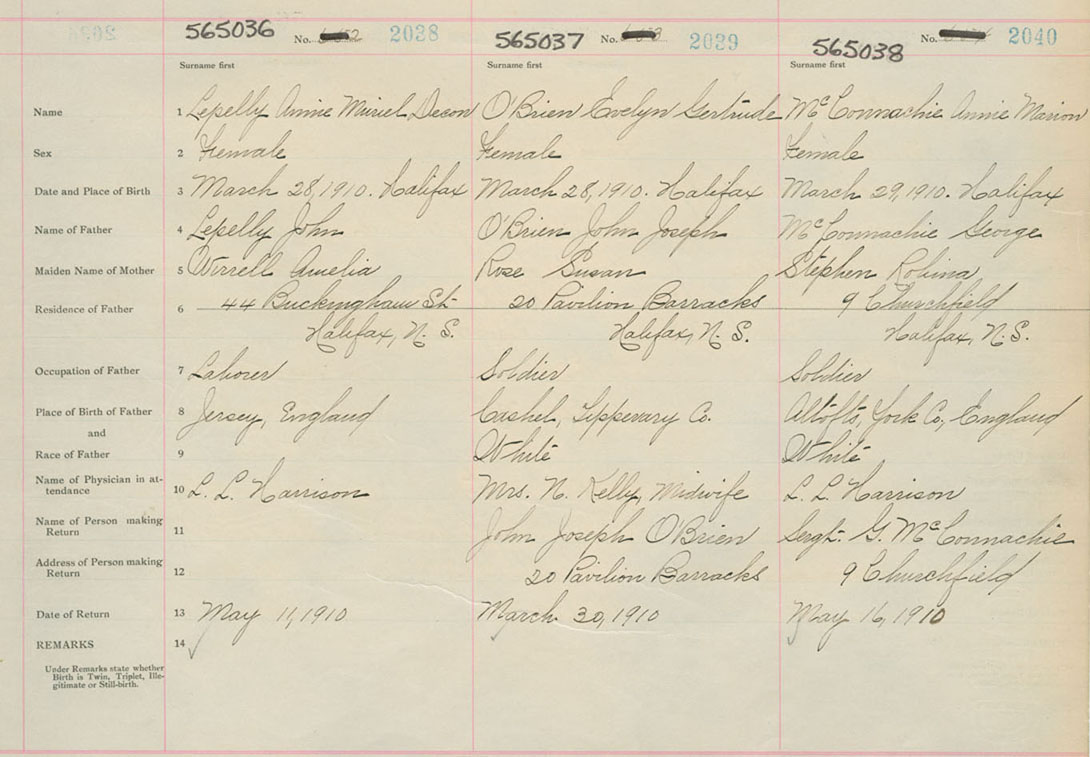 565036 No. 2038 565037 No. 2039 565038 No. 2040
Surname first Surname first Surname first
Name 1 Lepelly Annie Muriel Decon O'Brien Evelyn Gertrude McConnachie Annie Marion
Sex 2 Female Female Female
Date and Place of Birth 3 March 28, 1910. Halifax March 28, 1910. Halifax March 29, 1910. Halifax
Name of Father 4 Lepelly John O'Brien John Joseph McConnachie George
Maiden Name of Mother 5 Virrell Amelia Rose Susan Stephen Robina
Residence of Father 6 44 Buckingham St. 20 Pavilion Barracks 9 Churchfield
Halifax, N.S. Halifax, N.S. Halifax, N.S.
Occupation of Father 7 Laborer Soldier Soldier
Place of Birth of Father 8 Jersey, England Cashel, Tipperary Co. Altofts, York Co, England
and
Race of Father 9 White White
Name of Physician in at-
tendance 10 L. L. Harrison Mrs. N. Kelly, Midwife L. L. Harrison
Name of Person making
Return 11 John Joseph O'Brien Sergt. G. McConnachie
Address of Person making
Return 12 20 Pavilion Barracks 9 Churchfield
Date of Return 13 May 11, 1910 March 30, 1910 May 16, 1910
REMARKS 14
Under Remarks state whether
Birth is Twin, Triplet, Ille-
gitimate or Still-birth.